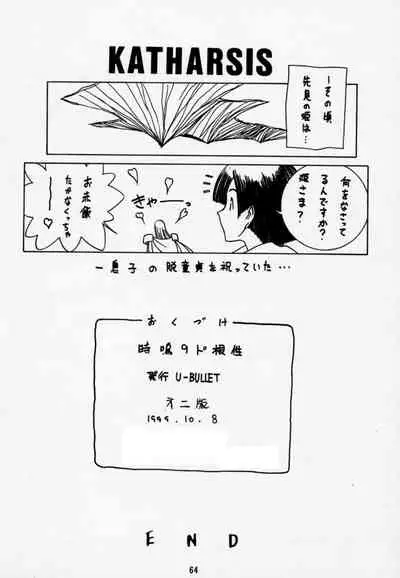 KATHARSIS
ーその頃
先見の姫は…
何をなさって
るんですか?
姫さま?
きゃーーっ
お赤飯
たかなくっちゃ
ー息子の脱童貞を祝っていた…
おくづけ
時鳴りド根性
発行 U-BULLET
才二版
1999.10.8
END
64